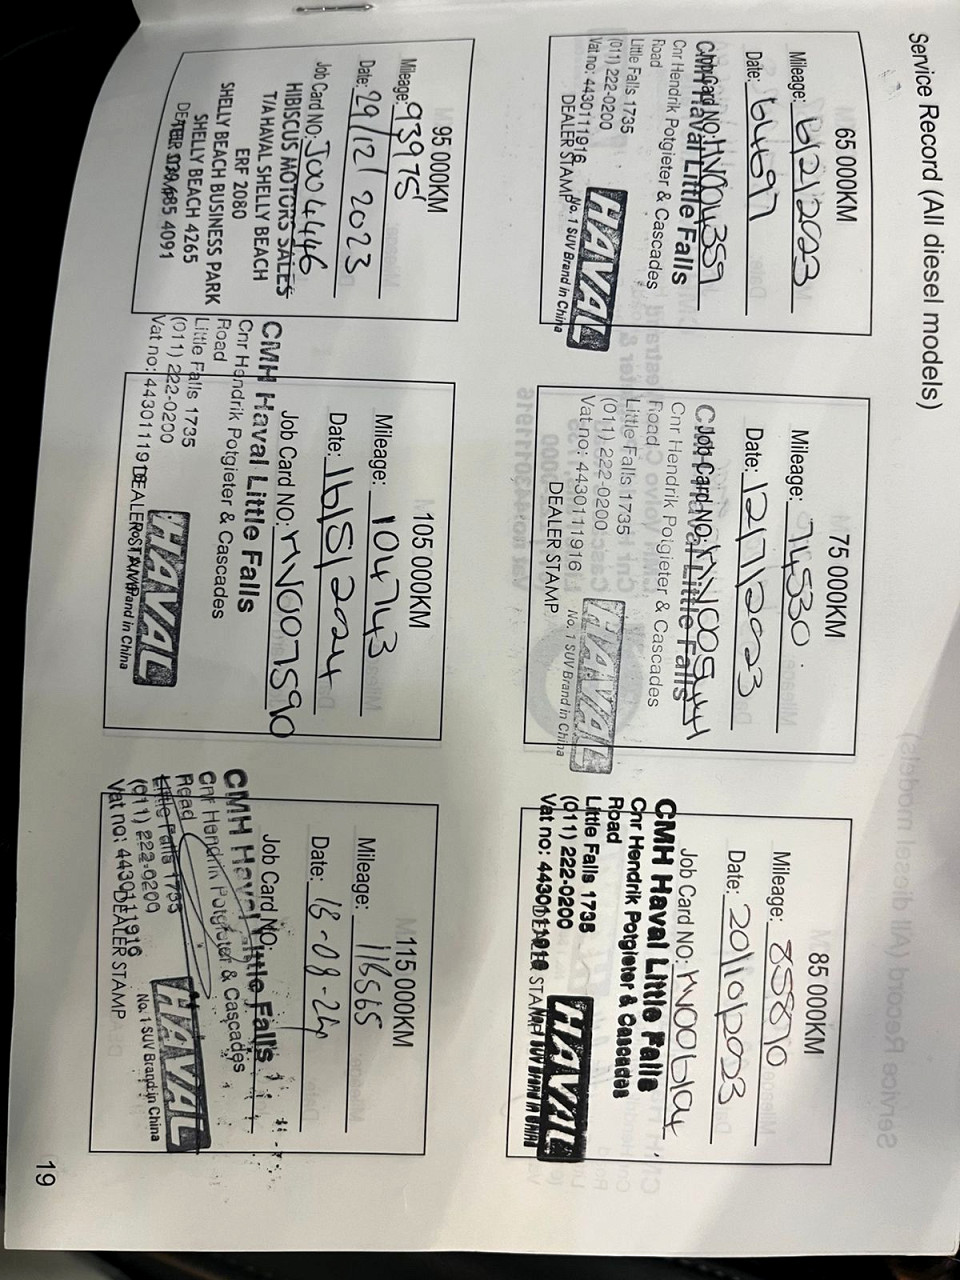 Service Record (All diesel models)
65 000KM
Mileage: 6/2/2023
Date: 64697
Job Card NO: HV004359
CMH Haval Little Falls
Cnr Hendrik Potgieter & Cascades
Road
Little Falls 1735
(011) 222-0200
Vat no: 4430111916
DEALER STAMP
HAVAL
No. 1 SUV Brand in China
75 000KM
Mileage: 74530
Date: 12/7/2023
Job Card NO:
CMH Haval Little Falls
Cnr Hendrik Potgieter & Cascades
Road
Little Falls 1735
(011) 222-0200
Vat no: 4430111916
DEALER STAMP
HAVAL
No. 1 SUV Brand in China
85 000KM
Mileage: 85870
Date: 20/10/2023
Job Card NO:
CMH Haval Little Falls
Cnr Hendrik Potgieter & Cascades
Road
Little Falls 1735
(011) 222-0200
Vat no: 4430111916
DEALER STAMP
HAVAL
No. 1 SUV Brand in China
95 000KM
Mileage: 93975
Date: 29/12/2023
Job Card NO: J004446
HIBISCUS MOTORS SALES
T/A HAVAL SHELLY BEACH
ERF 2080
SHELLY BEACH BUSINESS PARK
SHELLY BEACH 4265
DEALER STAMP
105 000KM
Mileage: 104743
Date: 16/5/2024
Job Card NO: HV007590
CMH Haval Little Falls
Cnr Hendrik Potgieter & Cascades
Road
Little Falls 1735
(011) 222-0200
Vat no: 4430111916
DEALER STAMP
HAVAL
No. 1 SUV Brand in China
115 000KM
Mileage: 116565
Date: 18-09-24
Job Card NO:
CMH Haval Little Falls
Cnr Hendrik Potgieter & Cascades
Road
Little Falls 1735
(011) 222-0200
Vat no: 4430111916
DEALER STAMP
HAVAL
No. 1 SUV Brand in China
19